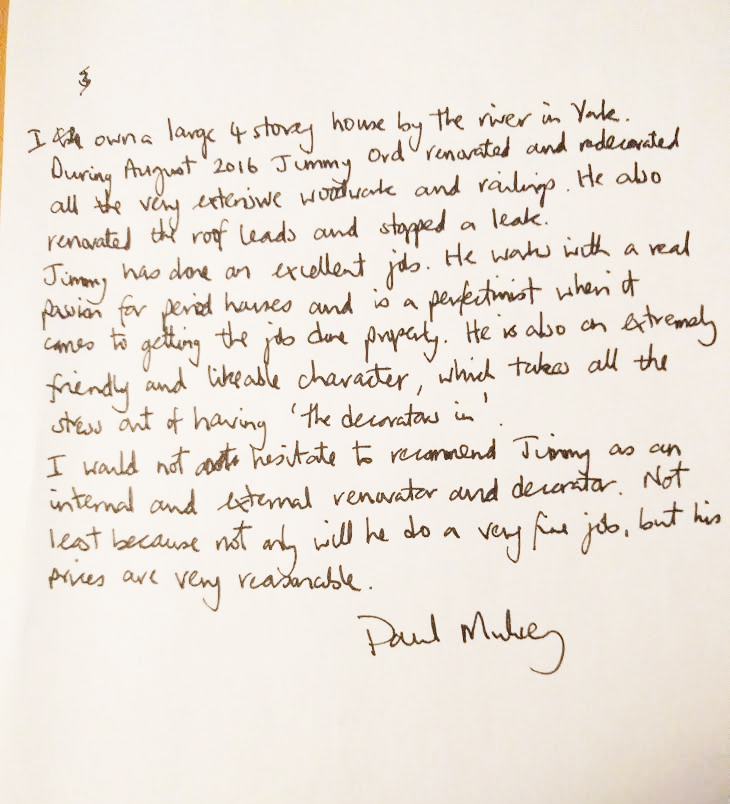 I own a large 4 storey house by the river in York.
During August 2016 Jimmy Ord renovated and redecorated
all the very extensive woodwork and railings. He also
renovated the roof leads and stopped a leak.
Jimmy has done an excellent job. He works with a real
passion for period houses and is a perfectionist when it
comes to getting the job done properly. He is also an extremely
friendly and likeable character, which takes all the
stress out of having 'the decorators in'.
I would not hesitate to recommend Jimmy as an
internal and external renovator and decorator. Not
least because not only will he do a very fine job, but his
prices are very reasonable.
Paul